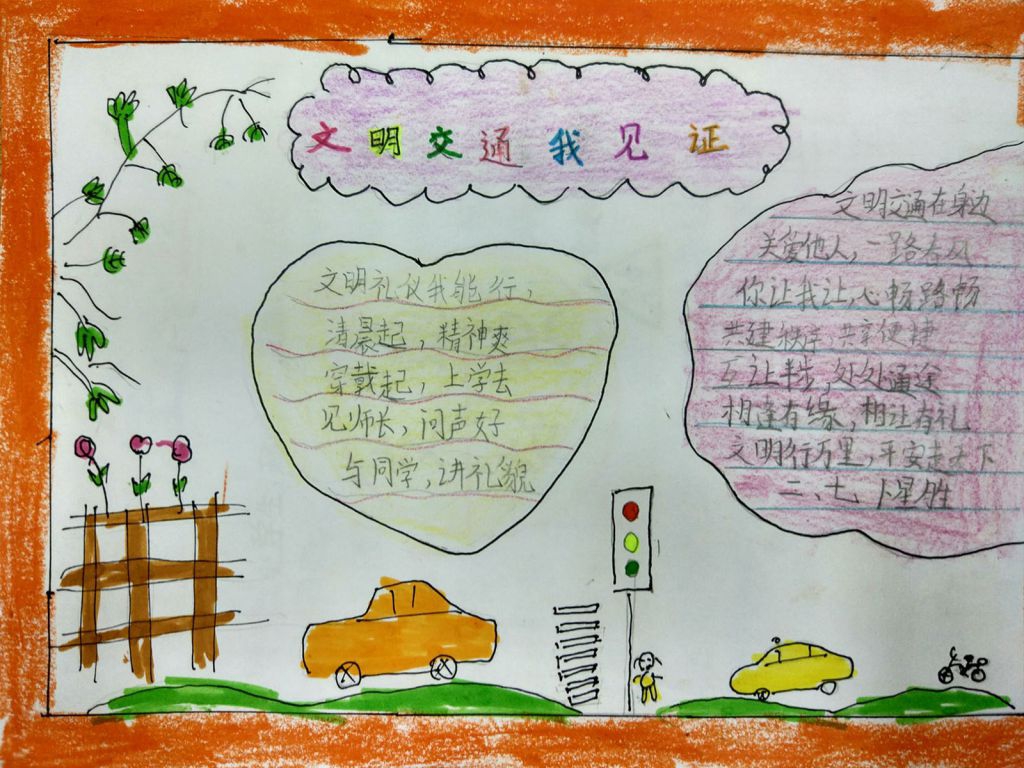 文明交通我见证
文明礼仪我能行，
清晨起，精神爽
穿戴起，上学去
见师长，问声好
与同学，讲礼貌
文明交通在身边
关爱他人，一路春风
你让我让，心畅路畅
共建秩序，共享便捷
互让半步，处处通途
相逢有缘，相让有礼
文明行万里，平安走天下
二、七 卜星胜